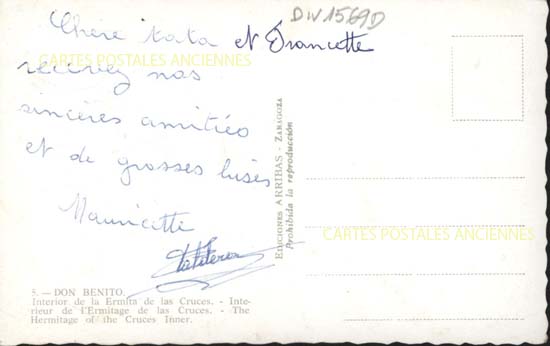 DIV1569D
Chère tata et Francette
recevez nos
sincères amitiés
et de grosses bises
Mauricette
CARTES POSTALES ANCIENNES
CARTES POSTALES ANCIENNES
EDICIONES ARRIBAS - ZARAGOZA
Prohibida la reproducción
5. — DON BENITO.
Interior de la Ermita de las Cruces. - Inte-
rieur de l'Ermitage de las Cruces. - The
Hermitage of the Cruces Inner.